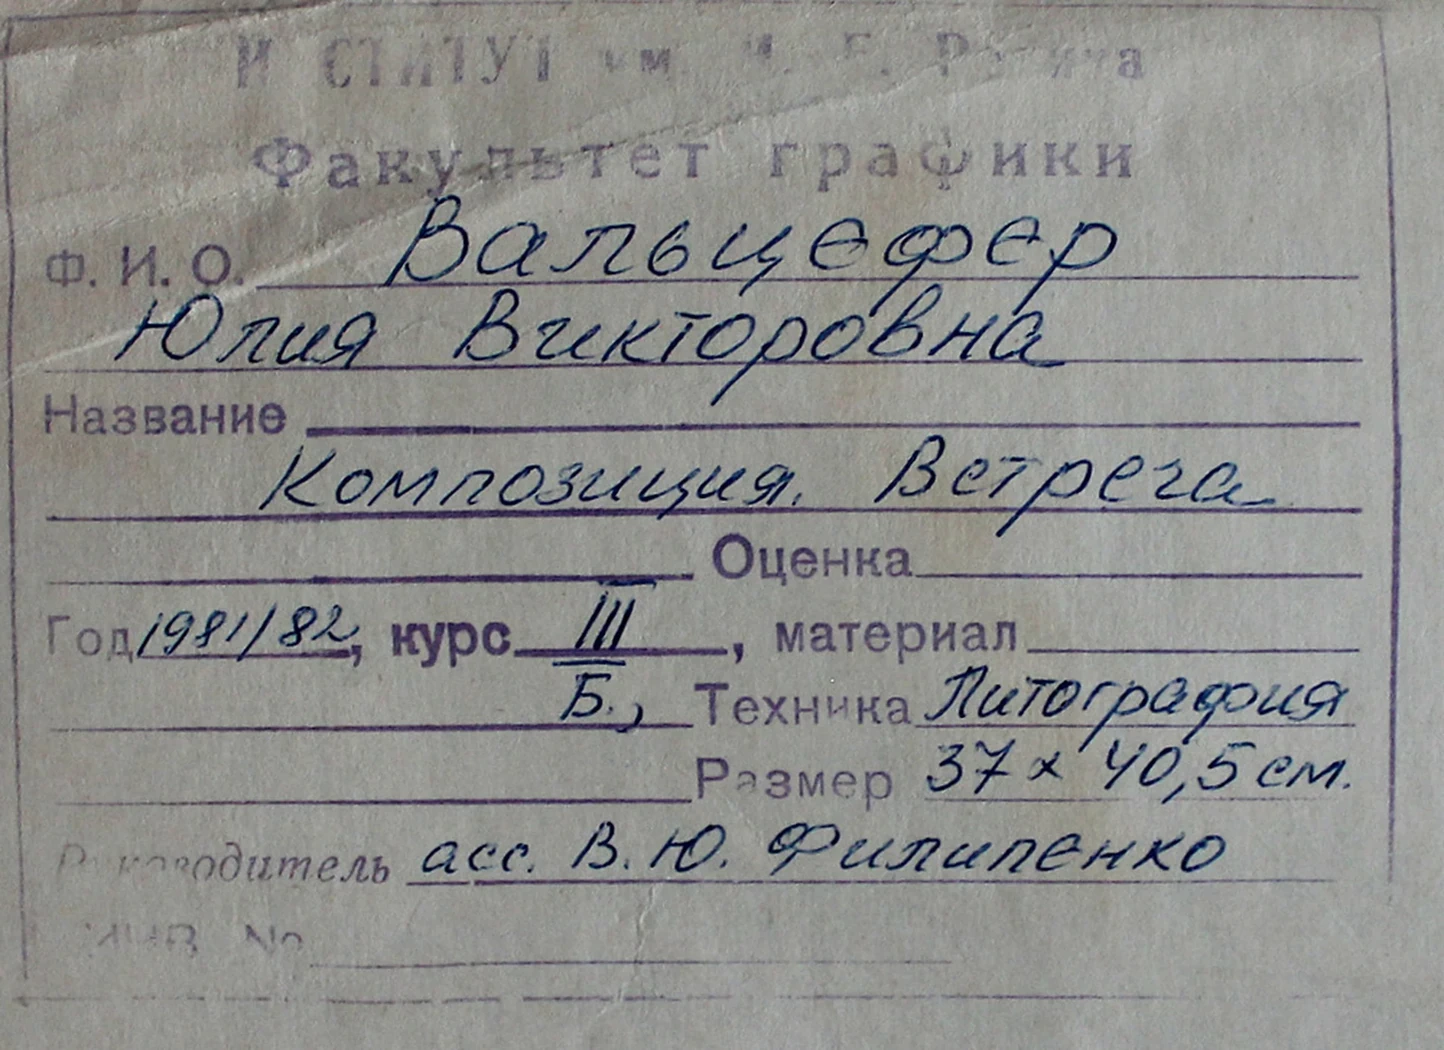 ИНСТИТУТ им. И. Е. Репина
Факультет графики
Ф. И. О. Вальцефер
Юлия Викторовна
Название
Композиция. Встреча
Оценка
Год 1981/82, курс III, материал
Б., Техника Литография
Размер 37 x 40,5 см.
Руководитель асс. В. Ю. Филипенко
ИНВ. №